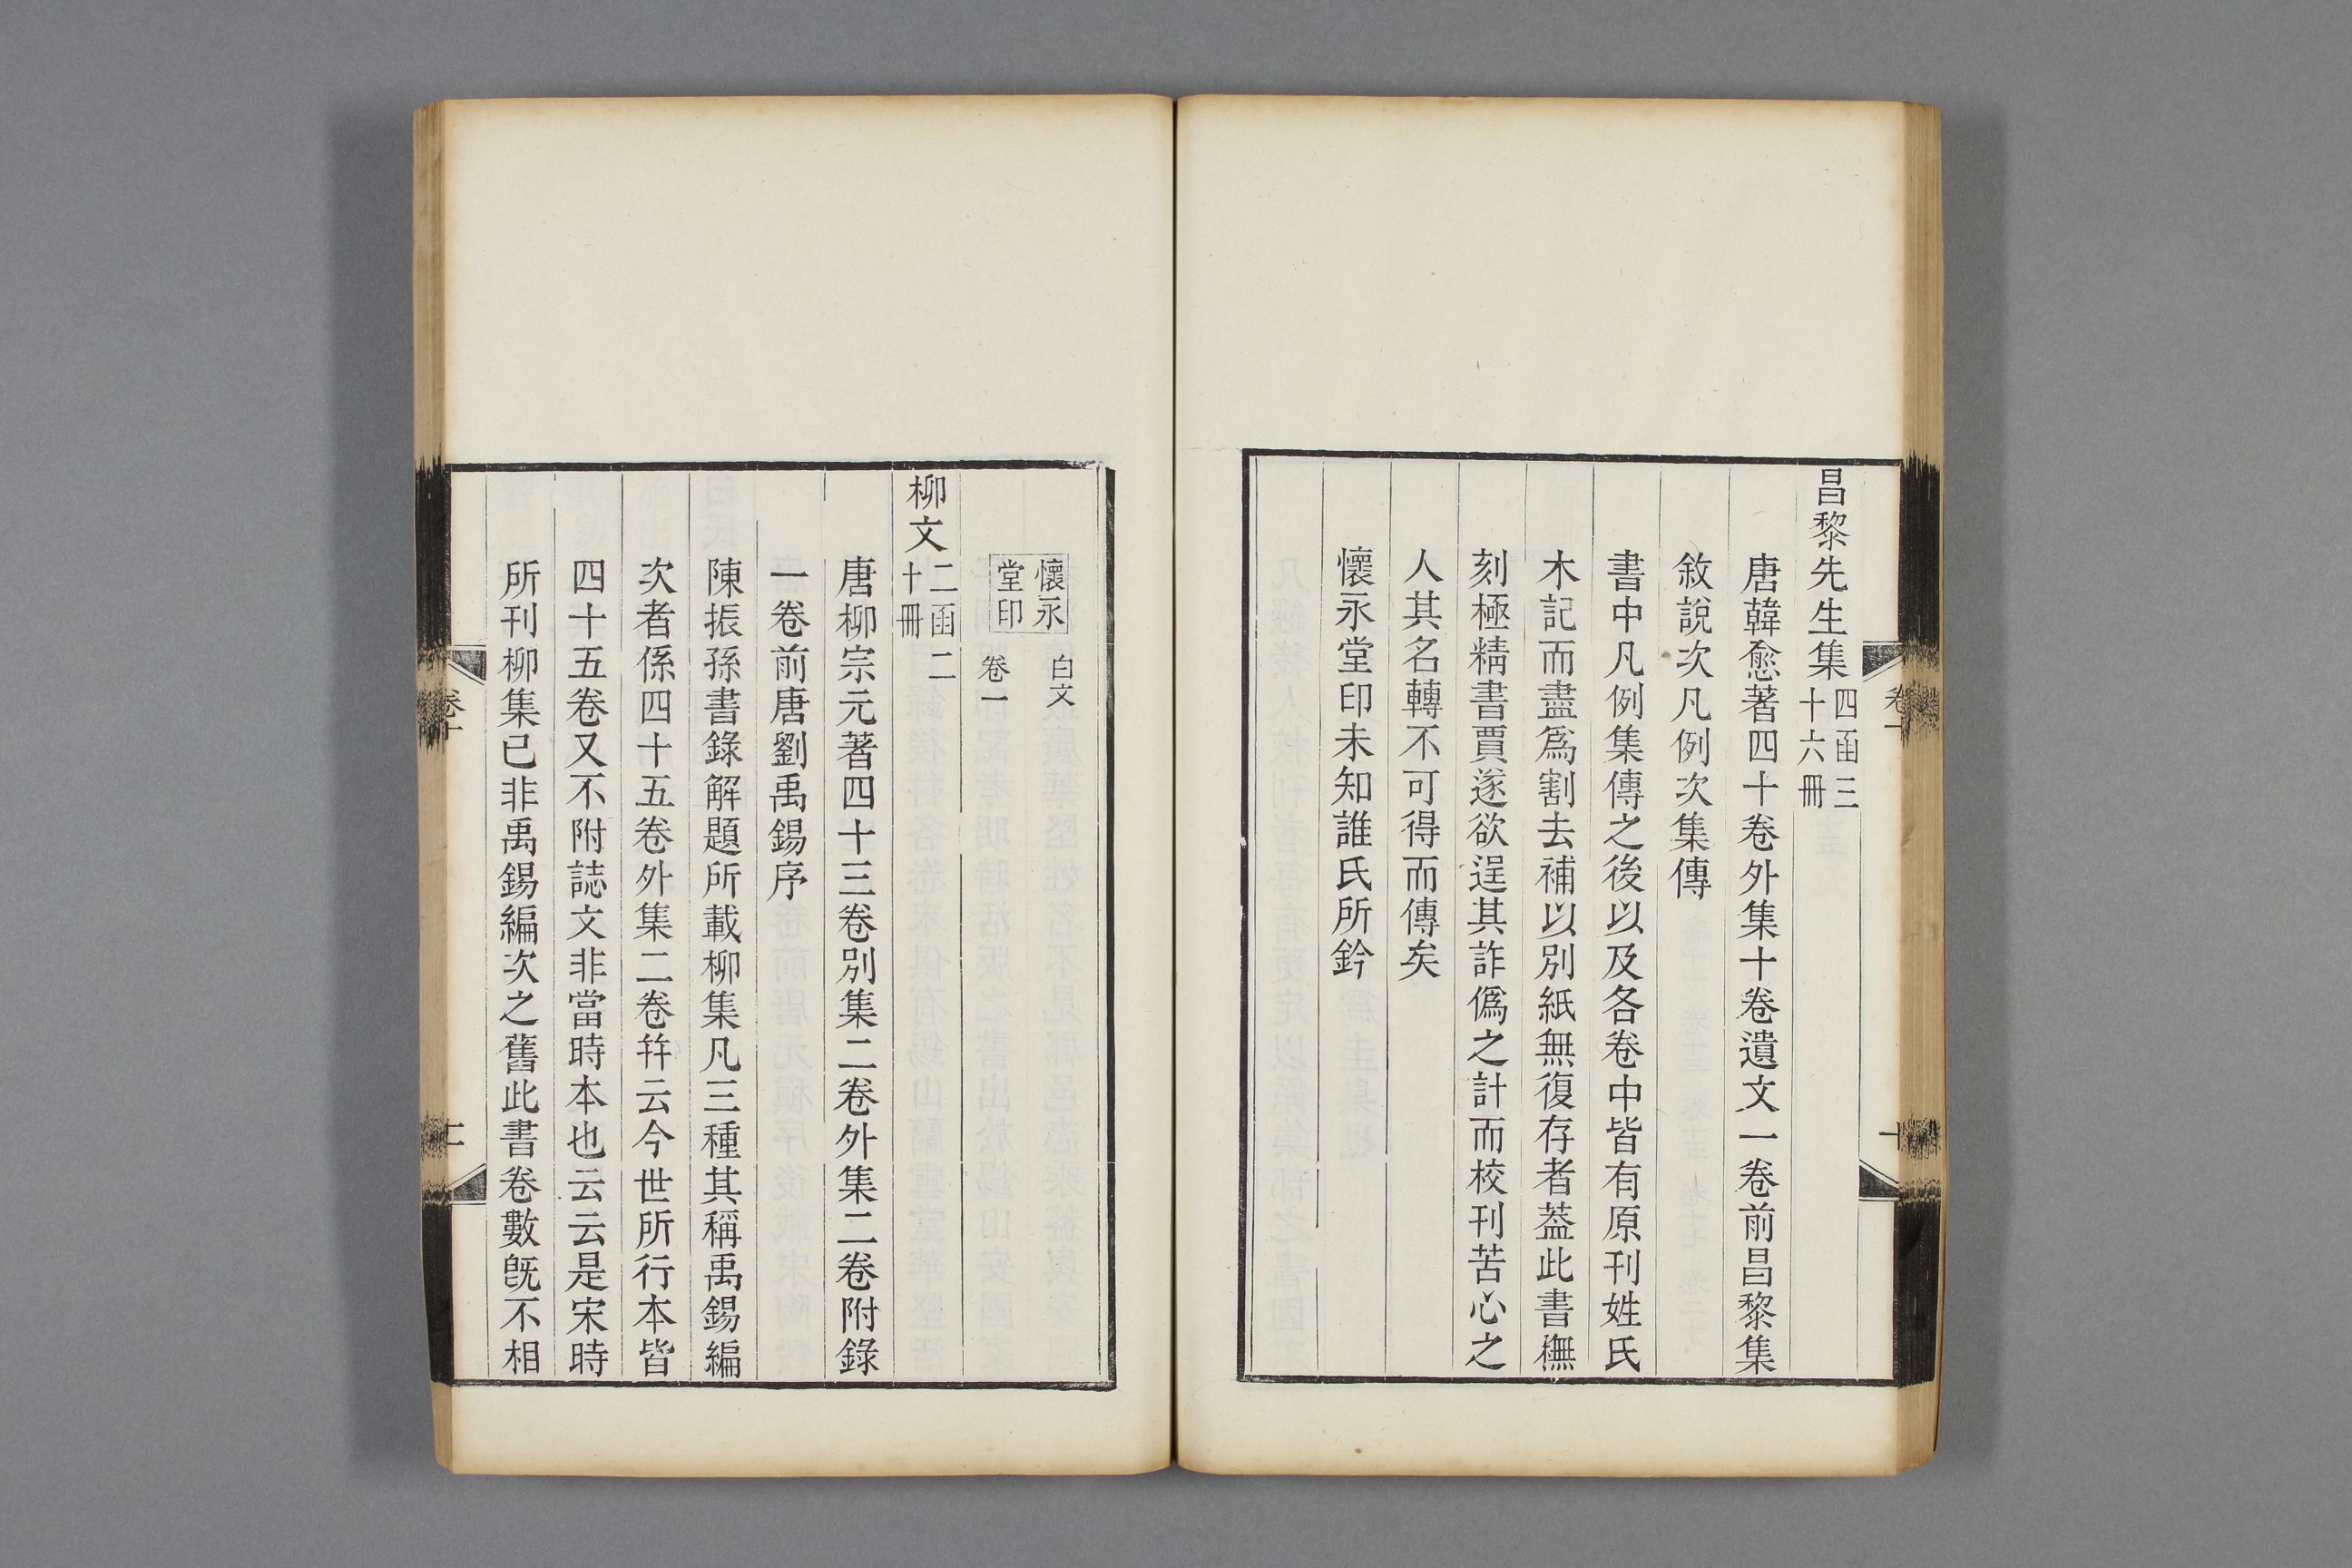 昌黎先生集四函三十六冊
唐韓愈著四十卷外集十卷遺文一卷前昌黎集
敘說次凡例次集傳
書中凡例集傳之後以及各卷中皆有原刊姓氏
木記而盡爲割去補以別紙無復存者葢此書橅
刻極精書賈遂欲逞其詐僞之計而校刊苦心之
人其名轉不可得而傳矣
懷永堂印未知誰氏所鈐
卷十
十
懷永堂印
白文
卷一
柳文二函二十冊
唐柳宗元著四十三卷別集二卷外集二卷附錄
一卷前唐劉禹錫序
陳振孫書錄解題所載柳集凡三種其稱禹錫編
次者係四十五卷外集二卷幷云今世所行本皆
四十五卷又不附誌文非當時本也云云是宋時
所刊柳集已非禹錫編次之舊此書卷數旣不相
卷十